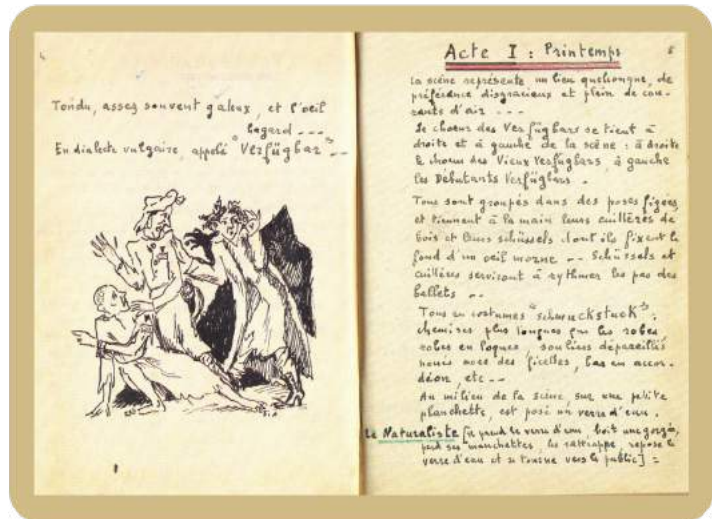 4
Tondu, assez souvent galeux, et l'oeil
hagard ---
En dialecte vulgaire, appelé "Verfügbar" --
Acte I : Printemps
La scène représente un lieu quelconque, de
préférence disgracieux et plein de cou-
rants d'air ---
Le choeur des Verfügbars se tient à
droite et à gauche de la scène : à droite
le choeur des Vieux Verfügbars, à gauche
les Débutants Verfügbars.
Tous sont groupés dans des poses figées,
et tiennent à la main leurs cuillères de
bois et leurs schüssels dont ils fixent le
fond d'un oeil morne -- Schüssels et
cuillères serviront à rythmer les pas des
ballets --
Tous en costumes "schmuckstuck" :
chemises plus longues que les robes,
robes en loques, souliers dépareillés
noués avec des ficelles, bas en accor-
déon, etc --
Au milieu de la scène, sur une petite
planchette, est posé un verre d'eau.
Le Naturaliste [il prend le verre d'eau, boit une gorgée,
perd ses manchettes, les rattrappe, repose le
verre d'eau et se tourne vers le public] =